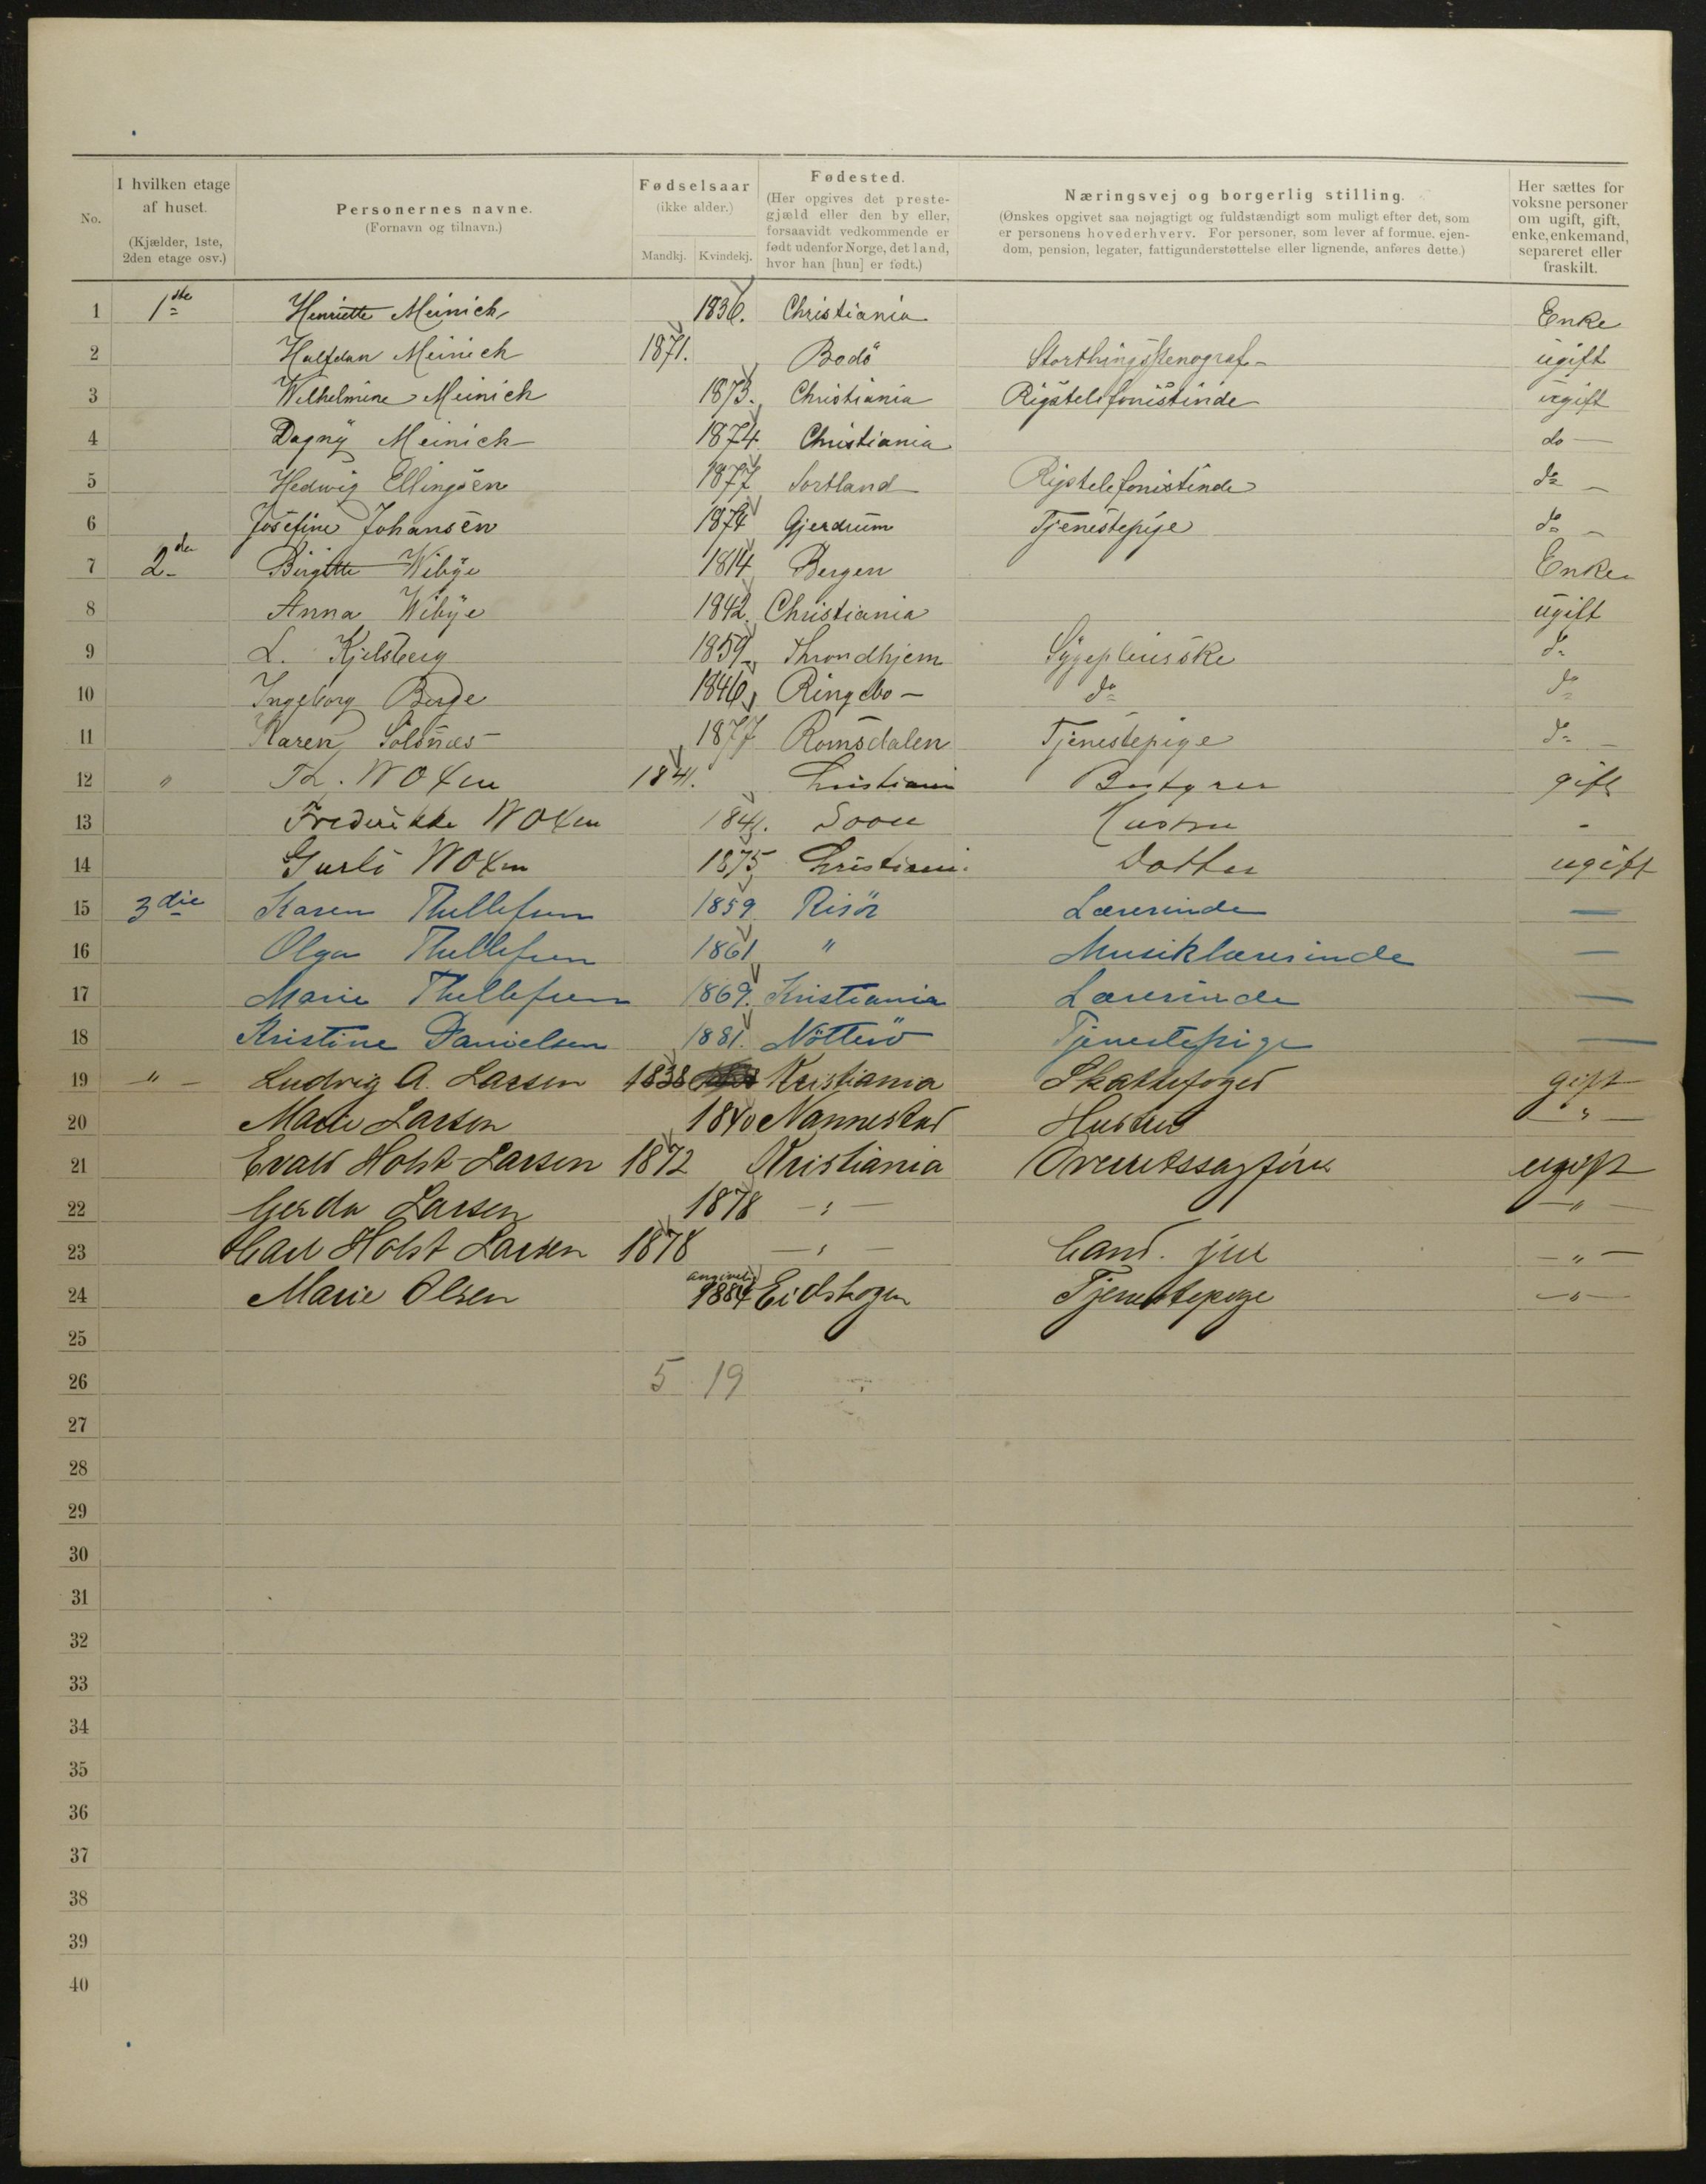 No.
I hvilken etage af huset. (Kjælder, 1ste, 2den etage osv.)
Personernes navne. (Fornavn og tilnavn.)
Fødselsaar (ikke alder.) Mandkj. Kvindekj.
Fødested. (Her opgives det prestegjæld eller den by eller, forsaavidt vedkommende er født udenfor Norge, det land, hvor han [hun] er født.)
Næringsvej og borgerlig stilling.
(Ønskes opgivet saa nøjagtigt og fuldstændigt som muligt efter det, som er personens hovederhverv. For personer, som lever af formue, ejendom, pension, legater, fattigunderstøttelse eller lignende, anføres dette.)
Her sættes for voksne personer om ugift, gift, enke, enkemand, separeret eller fraskilt.
1 1ste Henriette Meinich 1836. Christiania Enke
2 Halfdan Meinich 1871. Bodö Storthingsstenograf ugift
3 Wilhelmine Meinich 1873. Christiania Rigstelefonistinde ugift
4 Dagny Meinich 1874 Christiania do —
5 Hedwig Ellingsen 1877 Sortland Rigstelefonistinde do —
6 Josefine Johansen 1874 Gjerdrum Tjenestepige do —
7 2den Birgitte Wibye 1814 Bergen Enke
8 Anna Wibye 1842. Christiania ugift
9 L. Kjelsberg 1859 Throndhjem Sygepleierske do
10 Ingeborg Berge 1846 Ringebo — do do
11 Karen Solsnæs 1877 Romsdalen Tjenestepige do —
12 " Th. Woxen 1841. Christiania Bestyrer gift
13 Frederikke Woxen 1841. Soon Hustru -
14 Gurli Woxen 1875 Christiania. Datter ugift
15 3die Karen Thellefsen 1859 Risör Lærerinde —
16 Olga Thellefsen 1861 " Musiklærerinde —
17 Marie Thellefsen 1869. Kristiania Lærerinde —
18 Kristine Danielsen 1881. Nötterö Tjenestepige —
19 " — Ludvig A. Larsen 1838 Kristiania Skattefoged gift
20 Marie Larsen 1840 Nannestad Hustru " —
21 Evald Holst-Larsen 1872 Kristiania Overretssagfører ugift
22 Gerda Larsen 1878 — " — — " —
23 Carl Holst Larsen 1878 — " — Cand. jur — " —
24 Marie Olsen angivelig 1884 Eidskogen Tjenestepige — " —
25
26 5 19
27
28
29
30
31
32
33
34
35
36
37
38
39
40